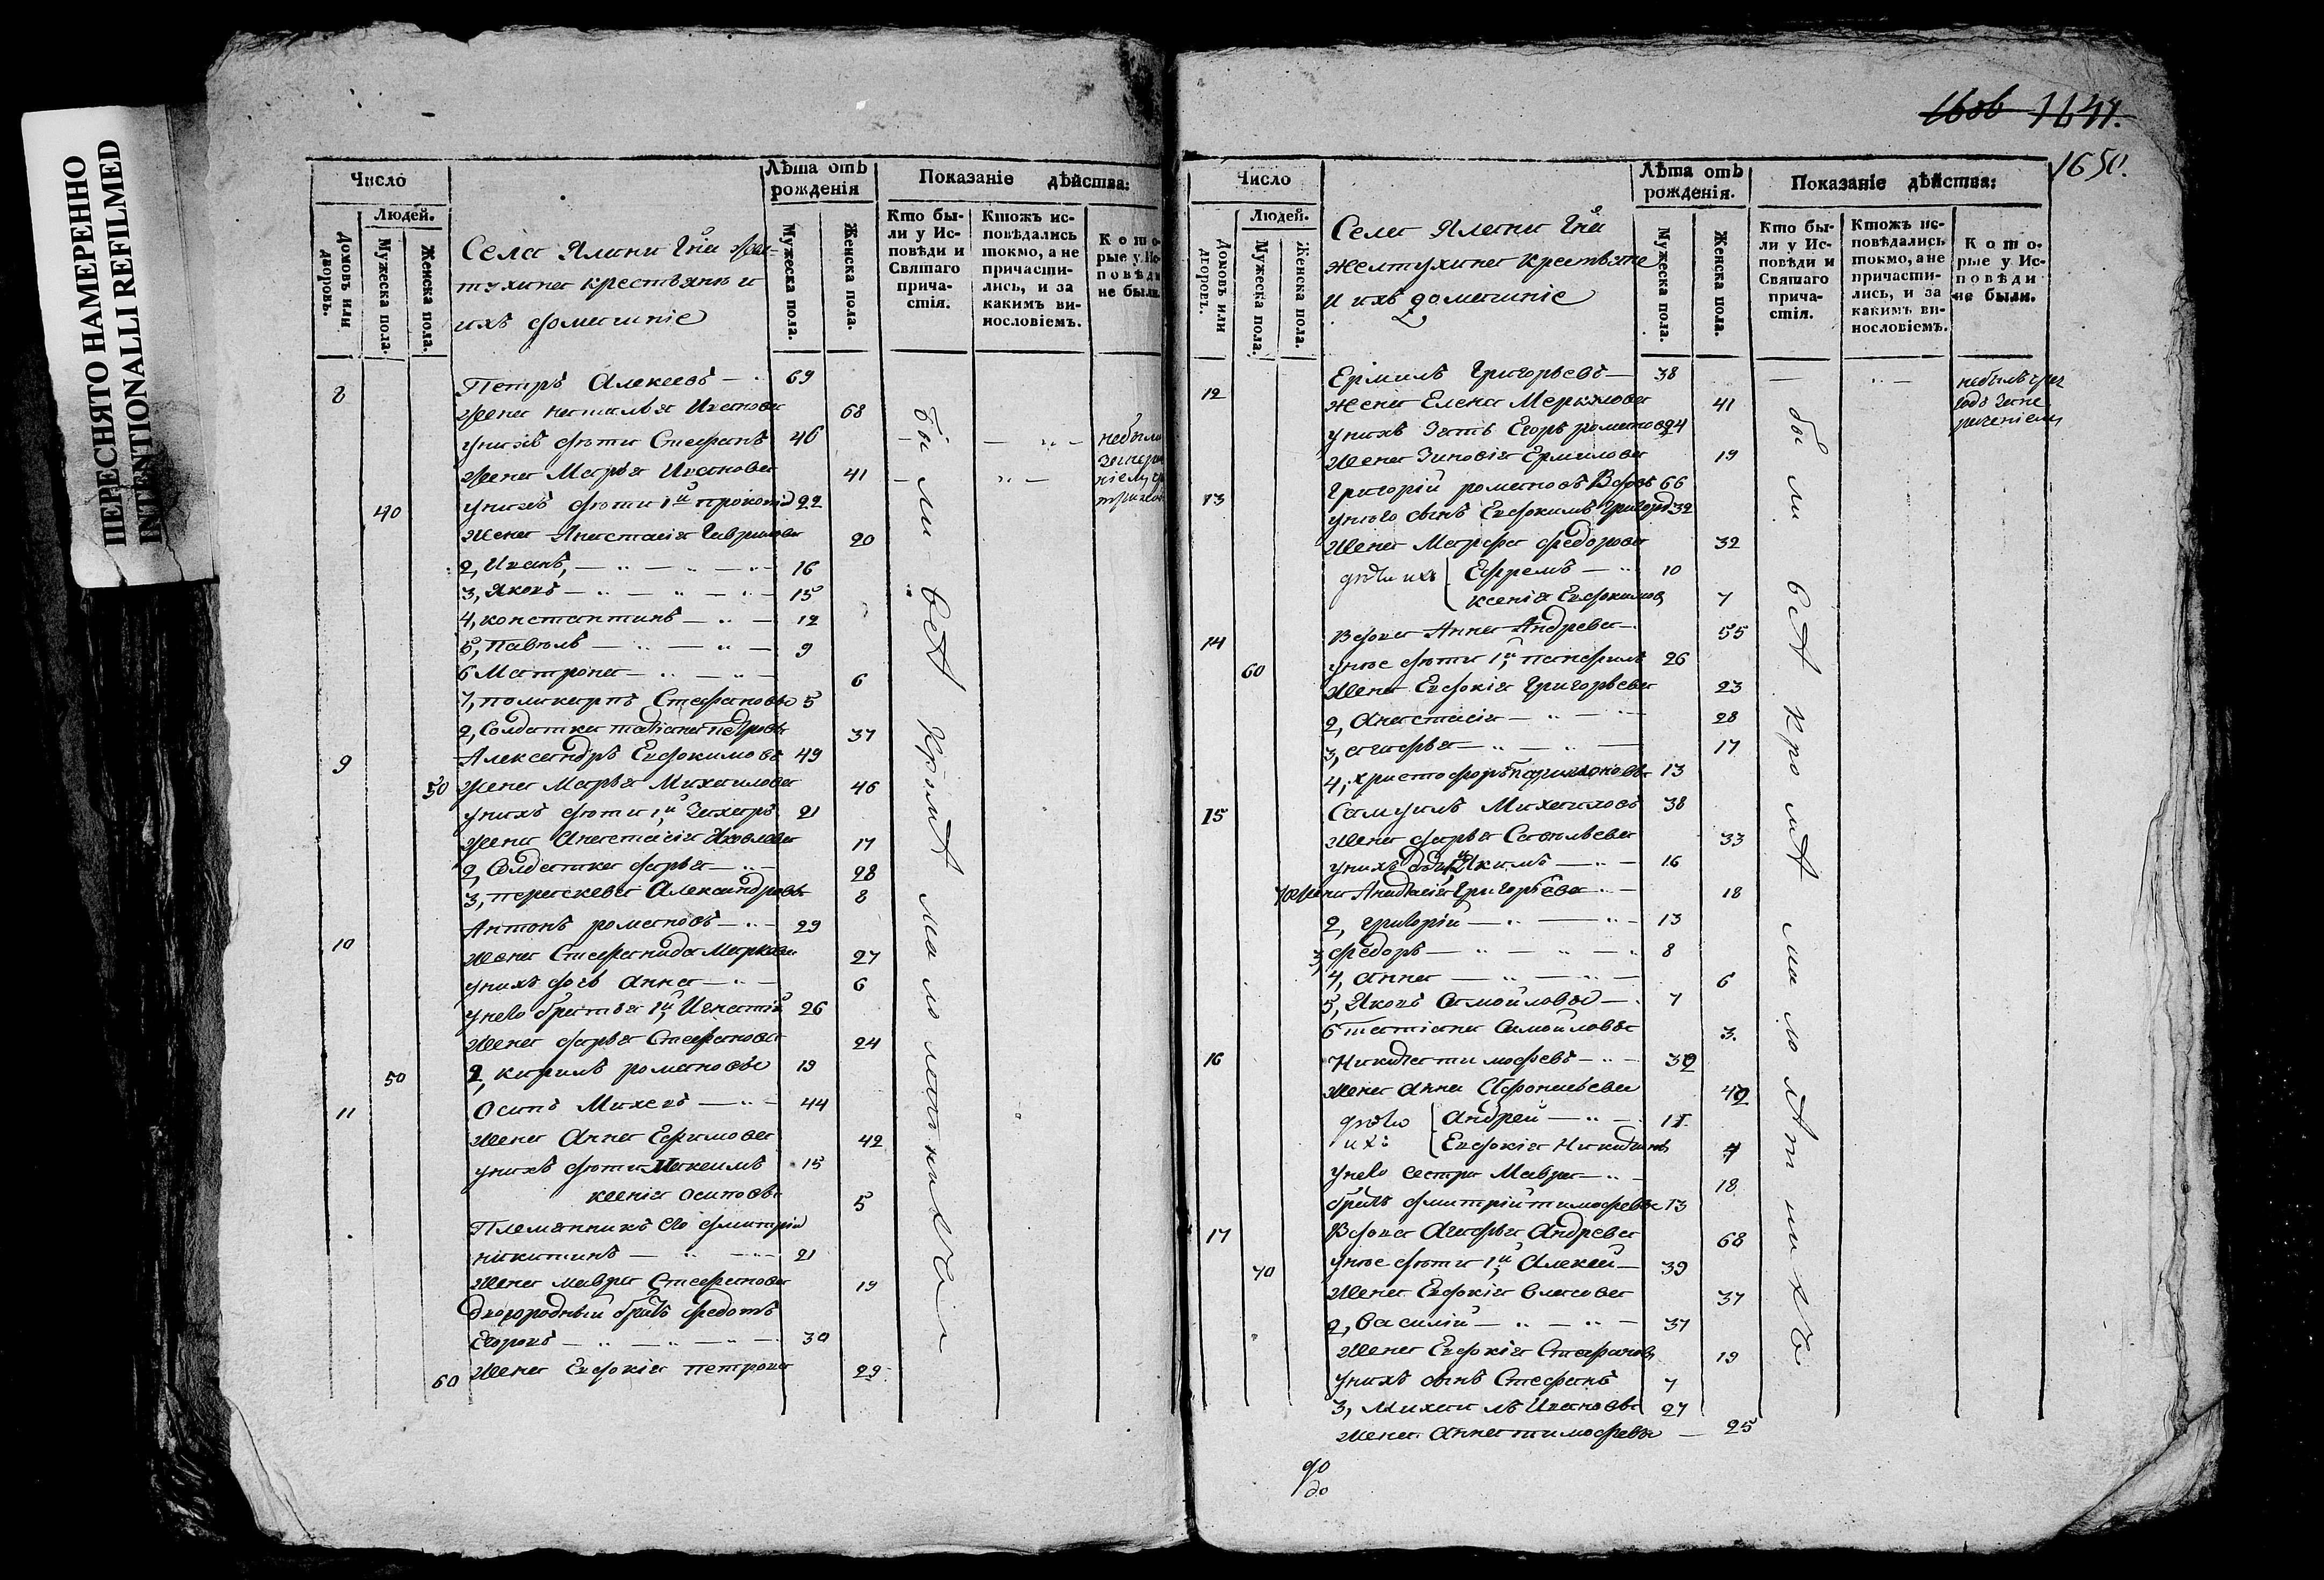 ПЕРЕСНЯТО НАМЕРЕННО
INTENTIONALLI REFILMED
Число
Людей.
Домовъ или дворовъ.
Мужеска пола.
Женска пола.
Села Ялини Гна Жел-
тухина крестьяне и
ихъ домашніе
Лѣта отъ рожденія
Мужеска пола.
Женска пола.
Показаніе дѣйства:
Кто бы-
ли у Ис-
повѣди и
Святаго
прича-
стія.
Ктожъ ис-
повѣдались
токмо, а не
причасти-
лись, и за
какимъ ви-
нословіемъ.
Кото-
рые у Ис-
повѣди
не были.
8 Петръ Алексеевъ — 69
Жена Наталья Иванова 68
у нихъ дѣти Стефанъ 46
Жена Марья Иванова 41
40 у нихъ дѣти 1й Прокопій 22
Жена Анастасія Гаврилова 20
2, Иванъ, 16
3, Яковъ 15
4, Константинъ 12
5, Павелъ 9
6 Матрона 6
7, Поликарпъ Стефановы 5
2, Солдатка Татіана Петрова 37
9 Александръ Евдокимовъ 49
50 Жена Марья Михаилова 46
у нихъ дѣти 1й Захаръ 21
Жена Анастасія Яковлева 17
2, Солдатка Дарья 28
3, Параскева Александровы 8
10 Антонъ Романовъ 29
Жена Стефанида Маркова 27
у нихъ дочь Анна 6
у нево братья 1й Игнатій 26
Жена Дарья Стефанова 24
50 2, Кирилъ Романовы 19
11 Осипъ Михеевъ 44
Жена Анна Ефимова 42
у нихъ дѣти 15
Ксенія Осиповы 5
Племянникъ его Дмитрій
Никитинъ 21
Жена Мавра Стефанова 19
Двоюродный братъ Федотъ
30
60 Жена Евдокія Петрова 29
были всѣ кромѣ малолѣтнихъ
1650.
Число
Людей.
Домовъ или дворовъ.
Мужеска пола.
Женска пола.
Села Ялини Гна
Желтухина Крестьяне
и ихъ домашніе
Лѣта отъ рожденія.
Мужеска пола.
Женска пола.
Показаніе дѣйства:
Кто бы-
ли у Ис-
повѣди и
Святаго
прича-
стія.
Ктожъ ис-
повѣдались
токмо, а не
причасти-
лись, и за
какимъ ви-
нословіемъ.
Кото-
рые у Ис-
повѣди
не были.
12 Ермилъ Григорьевъ 38
Жена Елена Меркулова 41
у нихъ Зять Егоръ Романовъ 24
Жена Зиновія Ермилова 19
13 Григорій Романовъ Вдовъ 66
у него сынъ Евдокимъ Григорьевъ 32
Жена Марфа Федорова 32
дѣти ихъ Ефремъ 10
Ксенія Евдокимовы 7
14 Вдова Анна Андрева 55
60 у нее дѣти 1й, Панфилъ 26
Жена Евдокія Григорьева 23
2, Анастасія 28
3, Агафья 17
4, Христофоръ 13
15 Самуилъ Михаиловъ 38
Жена Дарья Савельева 33
у нихъ дѣти 1й Якимъ 16
Жена Анастасія Григорьева 18
2, Григорій 13
3, Федоръ 8
4, Анна 6
5, Яковъ Самойловы 7
6 Татіана Самойловы 3.
16 Никита Тимофеевъ 39
Жена Анна Афонасьева 40
дѣти ихъ: Андрей 11
Евдокія Никитины 4
у нево сестра Мавра 18
братъ Дмитрій Тимофеевы 13
17 Вдова Агафья Андрева 68
70 у нее дѣти 1й, Алексѣй 39
Жена Евдокія Власова 37
2, Василій 37
Жена Евдокія Стефанова 19
у нихъ сынъ Стефанъ 7
3, Михаилъ Ивановы 27
Жена Анна Тимофеева 25
были всѣ кромѣ малолѣтнихъ